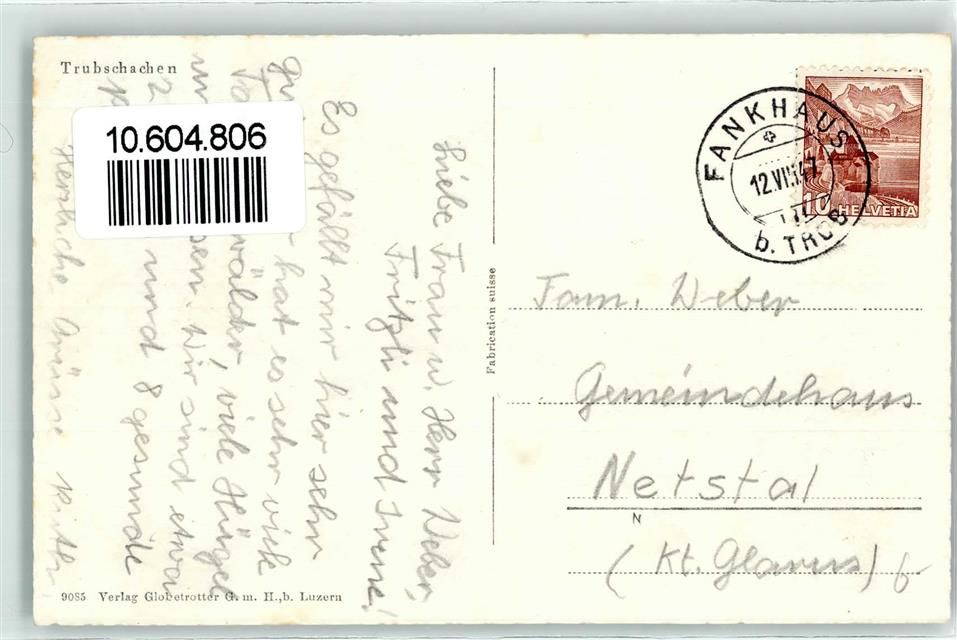 Trubschachen
10.604.806
Liebe Frau u. Herr Weber,
Fritzli und Irene!
Es gefällt mir hier sehr
hat es sehr viele
wälder, viele Hügel
Wir sind etwa
2 und 8 gesunde
Herzliche Grüsse Ruth
9085 Verlag Globetrotter G. m. H., b. Luzern
Fabrication suisse
FANKHAUS
12.VIII.47
b. TRUB
10 HELVETIA
Fam. Weber
Gemeindehaus
Netstal
N
(Kt. Glarus)